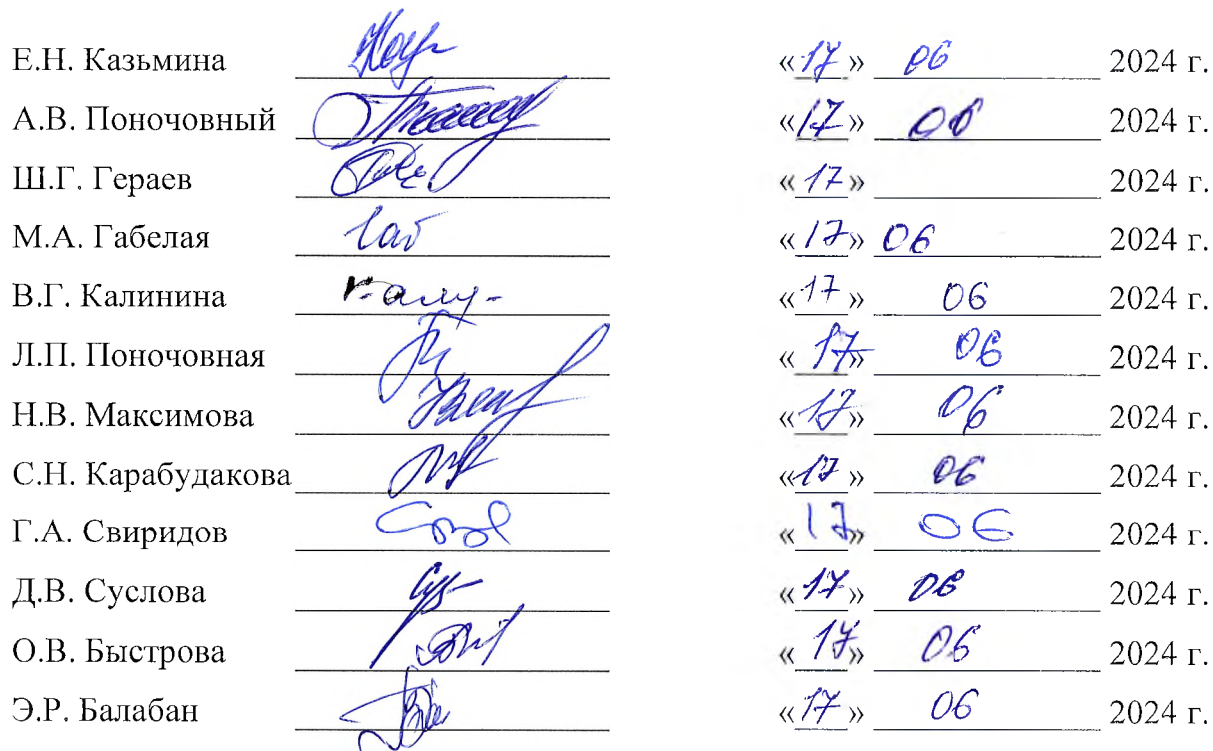 Е.Н. Казьмина «17» 06 2024 г.
А.В. Поночовный «17» 06 2024 г.
Ш.Г. Гераев «17» 2024 г.
М.А. Габелая Габ «17» 06 2024 г.
В.Г. Калинина «17» 06 2024 г.
Л.П. Поночовная «17» 06 2024 г.
Н.В. Максимова «17» 06 2024 г.
С.Н. Карабудакова «17» 06 2024 г.
Г.А. Свиридов «17» 06 2024 г.
Д.В. Суслова «17» 06 2024 г.
О.В. Быстрова «17» 06 2024 г.
Э.Р. Балабан «17» 06 2024 г.